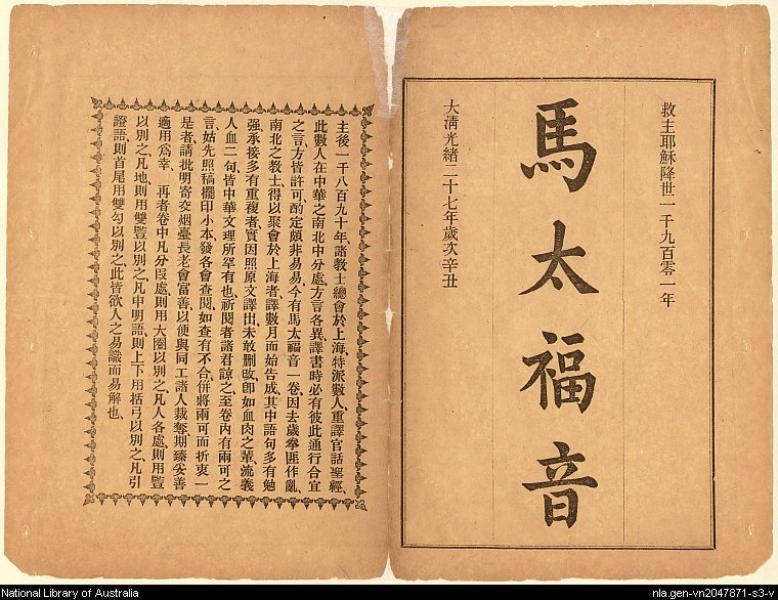 救主耶穌降世一千九百零一年
馬太福音
大淸光緖二十七年歲次辛丑
主後一千八百九十年、諸教士總會於上海、特派數人、重譯官話聖經、
此數人在中華之南北中分處、方言各異、譯書時必有彼此通行合宜
之言、方皆許可、酌定頗非易易、今有馬太福音一卷、因去歲拳匪作亂、
南北之教士、得以聚會於上海者、譯數月而始告成、其中語句多有勉
强承接、多有重複者、實因照原文譯出、未敢刪改、卽如血肉之輩、流義
人血二句、皆中華文理所罕有也、祈閱者諸君諒之、至卷內有兩可之
言、姑先照稿擺印小本、發各會查閱、如查有不合、倂將兩可而折衷一
是者、請批明寄交烟臺長老會富善、以便與同工諸人裁奪、期臻妥善
適用爲幸、再者卷中凡分段處、則用大圈以別之、凡人名處、則用豎
以別之、凡地、則用雙豎以別之、凡申明語、則上下用括弓以別之、凡引
證語、則首尾用雙勾以別之、此皆欲人之易識而易解也、
National Library of Australia
nla.gen-vn2047871-s3-v